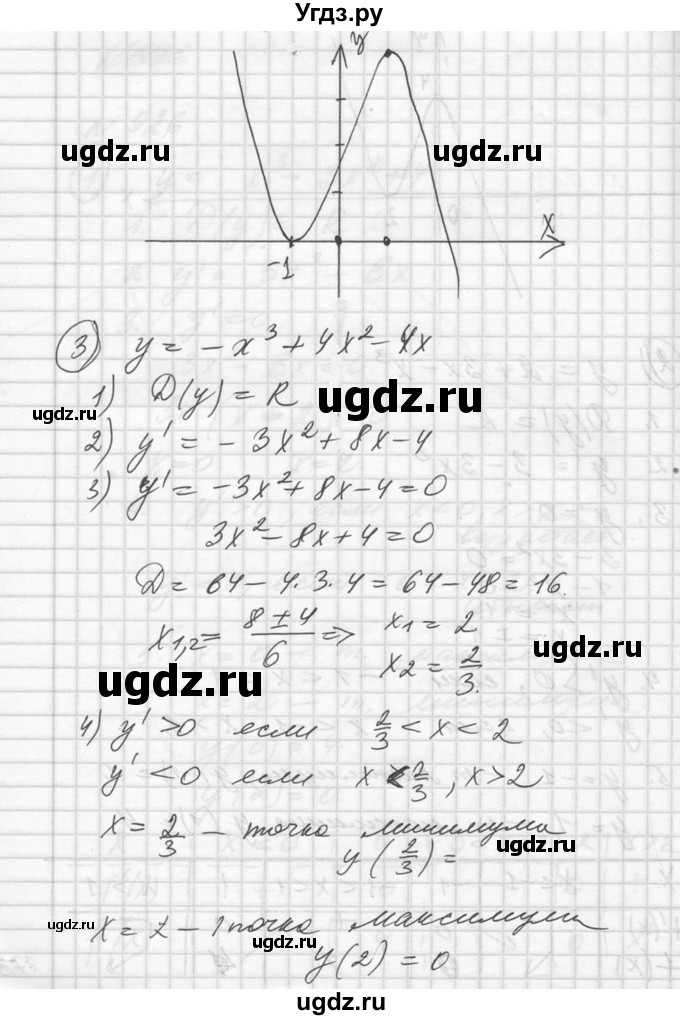 Угдз.ру
y
ugdz.ru ugdz.ru
X
-1
3) y = -x³ + 4x² - 4x
1) D(y) = R
ugdz.ru
ugdz.ru
2) y' = - 3x² + 8x - 4
3) y' = -3x² + 8x - 4 = 0
3x² - 8x + 4 = 0
D = 64 - 4·3·4 = 64 - 48 = 16.
x1,2 = (8 ± 4)/6 => x1 = 2
ugdz.ru
x2 = 2/3.
ugdz.ru
4) y' > 0 если 2/3 < x < 2
y' < 0 если x < 2/3, x > 2
x = 2/3 - точка минимума
ugdz.ru
y(2/3) =
x = 2 - точка максимума
ugdz.ru
ugdz.ru
ugdz.ru
y(2) = 0
ugdz.ru